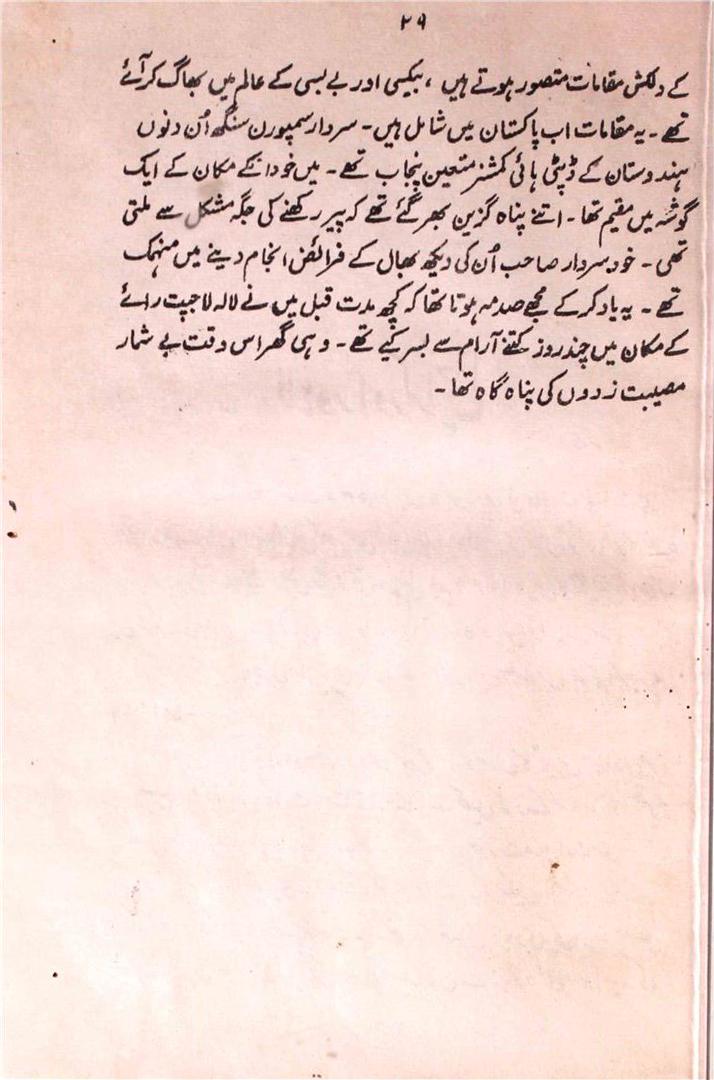 ۲۹
کے دلکش مقامات متصور ہوتے ہیں ، بیکسی اور بے بسی کے عالم میں بھاگ کر آئے
تھے ۔ یہ مقامات اب پاکستان میں شامل ہیں ۔ سردار سمپورن سنگھ اُن دنوں
ہندوستان کے ڈپٹی ہائی کمشنر متعین پنجاب تھے ۔ میں خود اُنکے مکان کے ایک
گوشہ میں مقیم تھا ۔ اتنے پناہ گزین بھر گئے تھے کہ پیر رکھنے کی جگہ مشکل سے ملتی
تھی ۔ خود سردار صاحب اُن کی دیکھ بھال کے فرائض انجام دینے میں منہمک
تھے ۔ یہ یاد کر کے مجھے صدمہ ہوتا تھا کہ کچھ مدت قبل میں نے لالہ لاجپت رائے
کے مکان میں چند روز کتنے آرام سے بسر کیے تھے ۔ وہی گھر اس وقت بے شمار
مصیبت زدوں کی پناہ گاہ تھا ۔